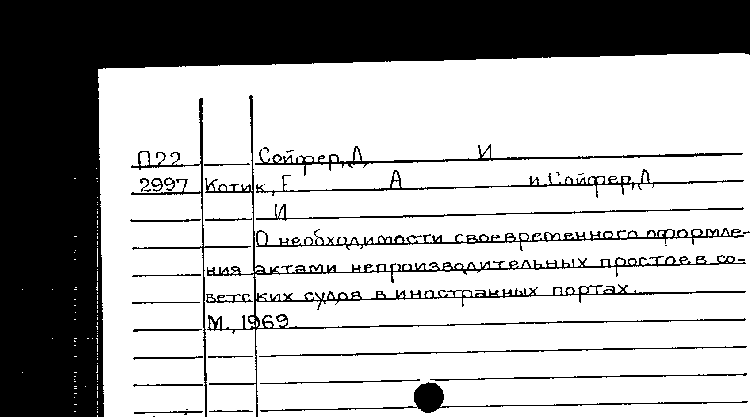 П22 Сойфер, Д. И
2997 Котик, Г. А и Сойфер, Д.
И
О необходимости своевременного оформле-
ния актами непроизводительных простоев со-
ветских судов в иностранных портах.
М., 1969.